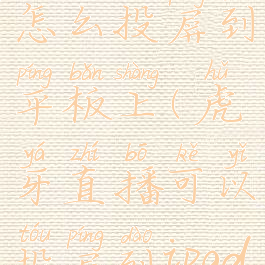 怎么投屏到
píng bǎn shàng hǔ
平板上(虎
yá zhí bō kě yǐ
牙直播可以
tóu píng dào
投屏到ipad